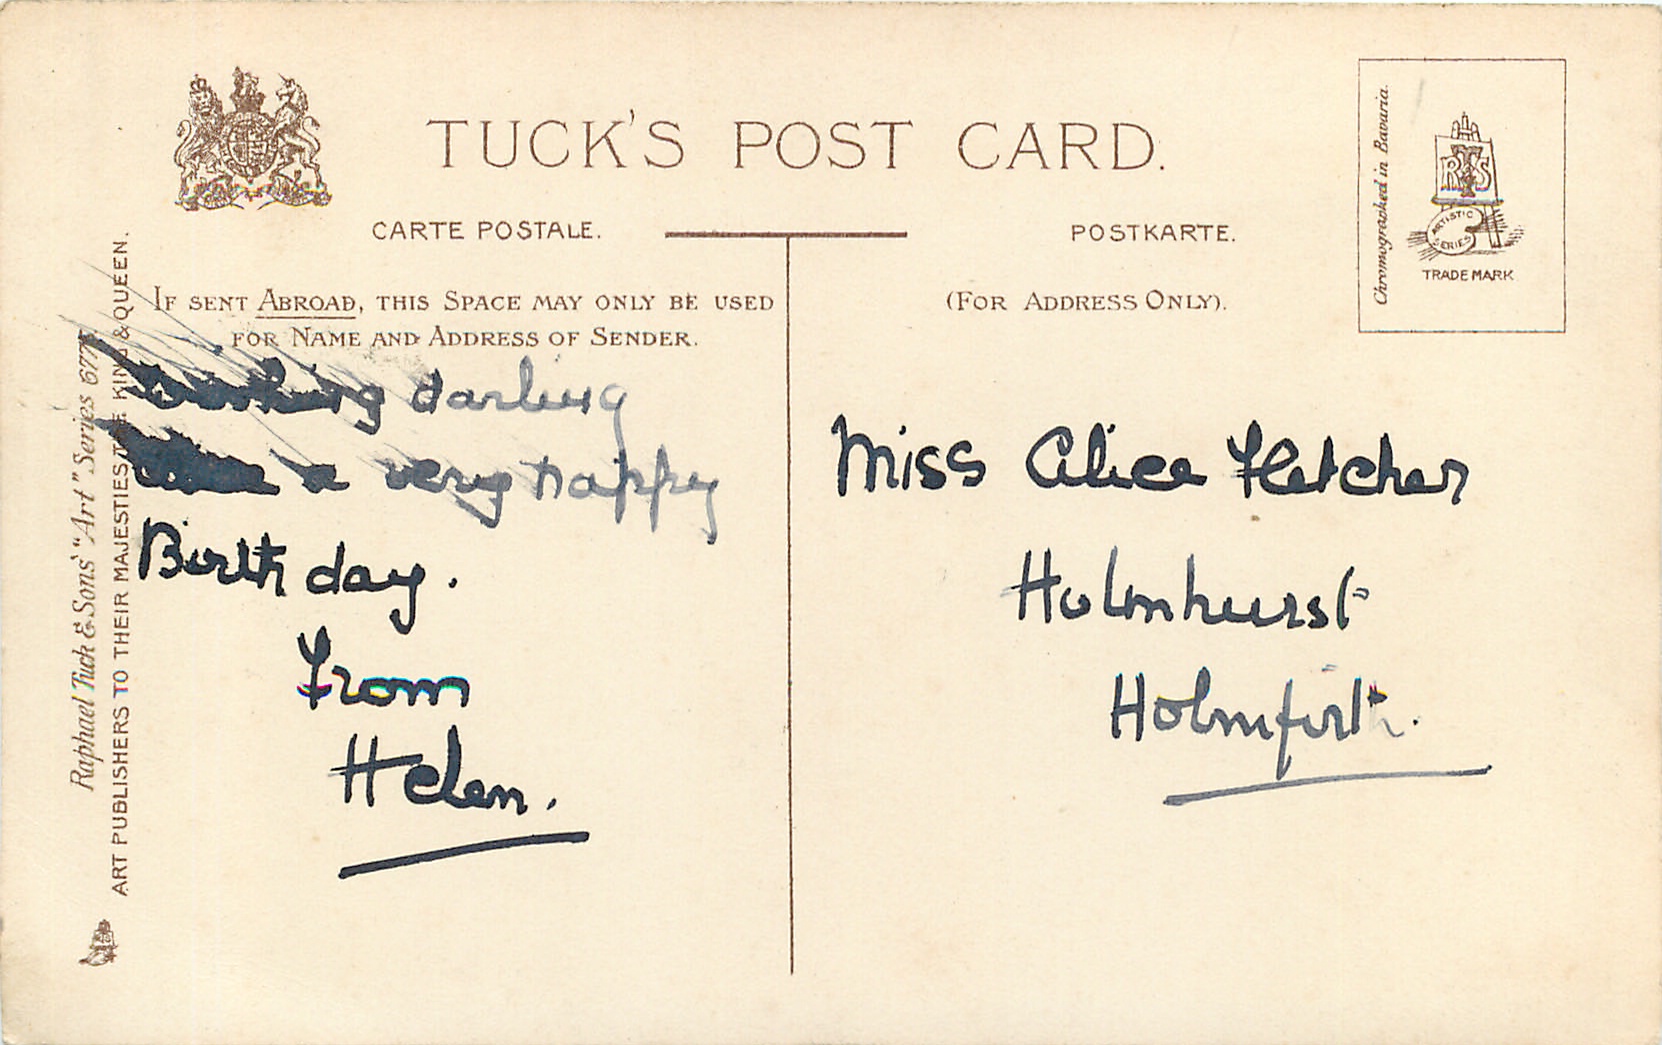 TUCK'S POST CARD.
CARTE POSTALE.
POSTKARTE.
IF SENT ABROAD, THIS SPACE MAY ONLY BE USED
FOR NAME AND ADDRESS OF SENDER.
(FOR ADDRESS ONLY).
Chromographed in Bavaria.
RTS
ARTISTIC
SERIES
TRADE MARK
Raphael Tuck & Sons' "Art" Series
ART PUBLISHERS TO THEIR MAJESTIES THE KING & QUEEN.
darling
a very happy
Birth day.
From
Helen.
Miss Alice Fletcher
Holmhurst
Holmfirth.